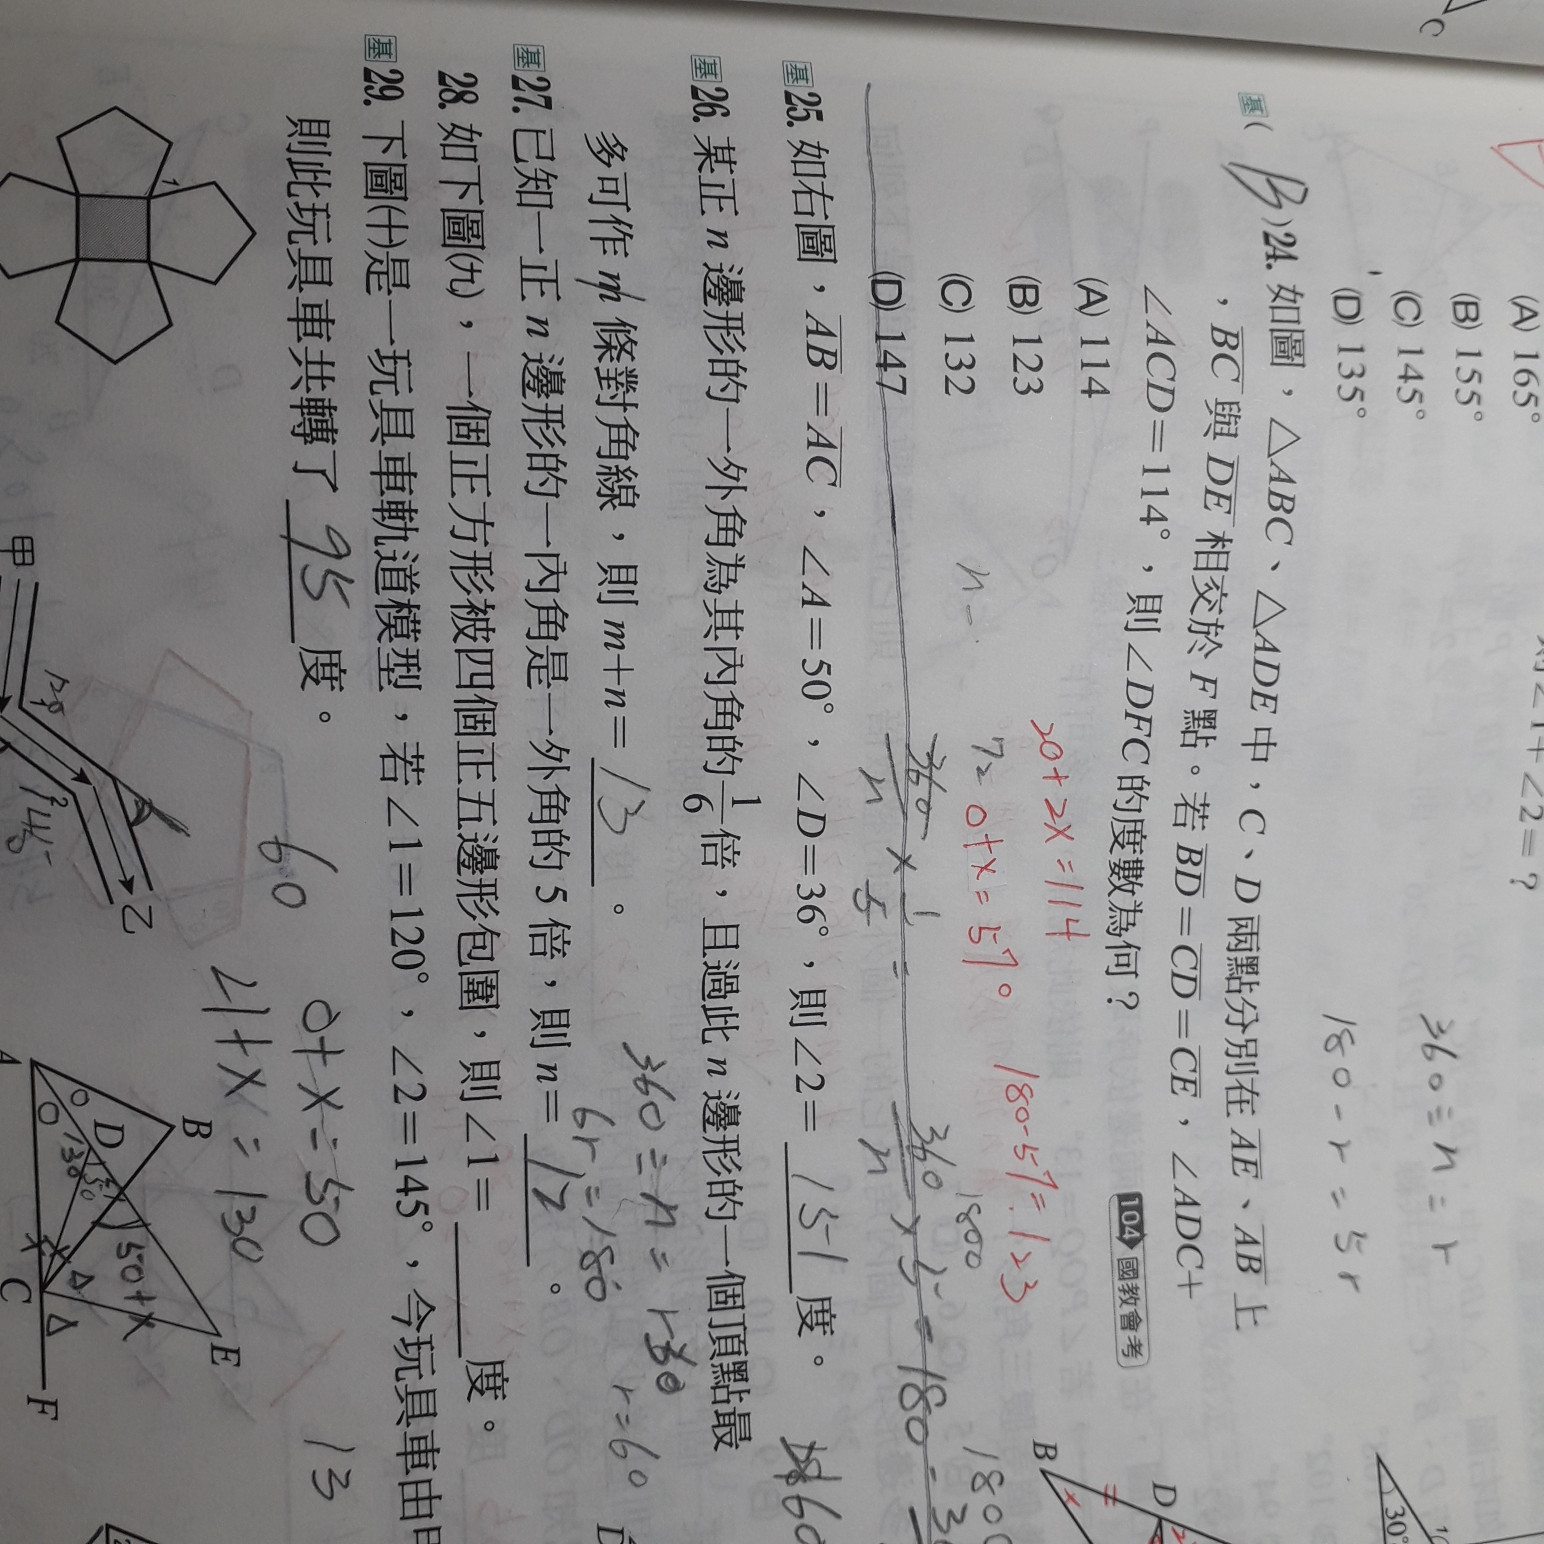 C
(A) 165°
(B) 155°
(C) 145°
(D) 135°
360÷n=r
180-r=5r
基( B )24. 如圖，△ABC、△ADE中，C、D兩點分別在AE、AB上
，BC與DE相交於F點。若BD=CD=CE，∠ADC+
∠ACD=114°，則∠DFC的度數為何？ 104 國教會考
(A) 114
(B) 123
(C) 132
(D) 147
20+2x=114
o+x=57°
180-57=123
n=
基25. 如右圖，AB=AC，∠A=50°，∠D=36°，則∠2= 151 度。
基26. 某正n邊形的一外角為其內角的1/6倍，且過此n邊形的一個頂點最
多可作m條對角線，則m+n= 13 。
基27. 已知一正n邊形的一內角是一外角的5倍，則n= 12 。
28. 如下圖(九)，一個正方形被四個正五邊形包圍，則∠1= 度。
基29. 下圖(十)是一玩具車軌道模型，若∠1=120°，∠2=145°，今玩具車由甲
則此玩具車共轉了 95 度。
6r=180
r=60
60
o+x=50
∠1+x=130
13
甲
乙
A
B
C
D
E
F
50+x
B
D
30°